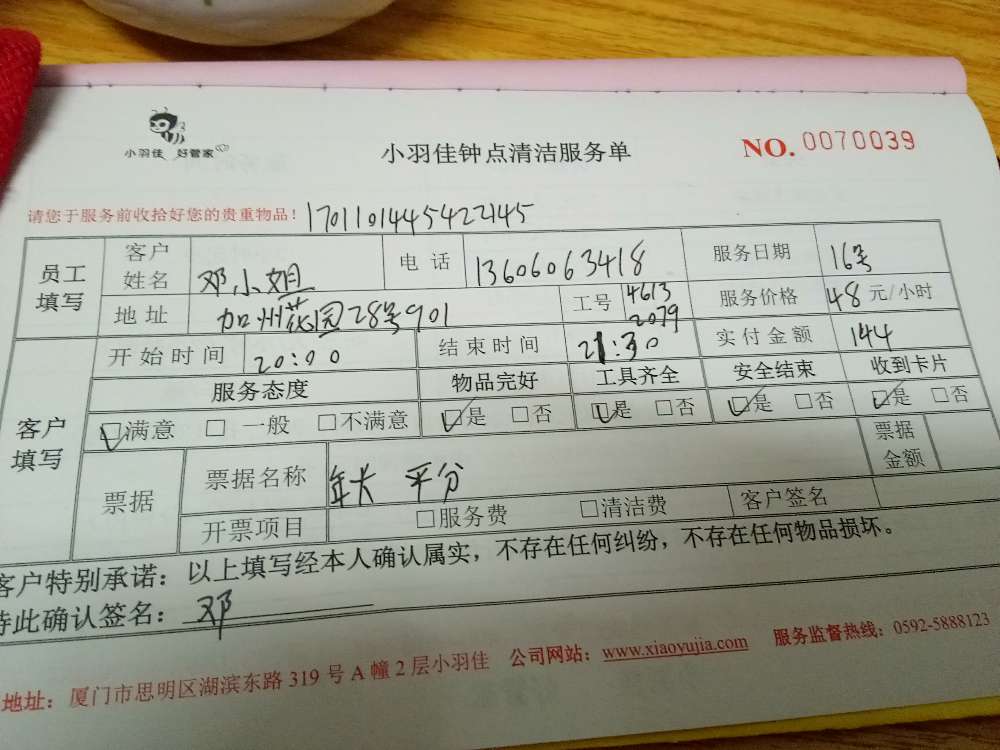 小羽佳 好管家
小羽佳钟点清洁服务单
NO. 0070039
请您于服务前收拾好您的贵重物品! 17011014454221​45
员工填写 客户姓名 邓小姐 电话 13606063418 服务日期 16号
地址 加州花园28号901 工号 4613 2079 服务价格 48 元/小时
客户填写 开始时间 20:00 结束时间 21:30 实付金额 144
服务态度 物品完好 工具齐全 安全结束 收到卡片
□满意 □ 一般 □不满意 □是 □否 □是 □否 □是 □否 □是 □否
票据 票据名称 年长 平分 票据金额
开票项目 □服务费 □清洁费 客户签名
客户特别承诺：以上填写经本人确认属实，不存在任何纠纷，不存在任何物品损坏。
特此确认签名： 邓
地址：厦门市思明区湖滨东路 319 号 A 幢 2 层小羽佳 公司网站：www.xiaoyujia.com 服务监督热线：0592-5888123